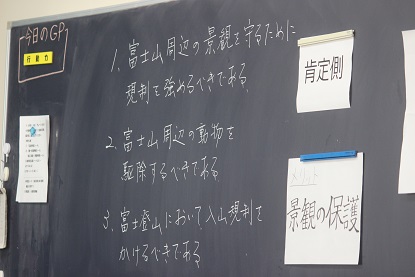 今日のGP
行動力
1. 富士山周辺の景観を守るために
規制を強めるべきである。
2. 富士山周辺の動物を
駆除するべきである
3. 富士登山において、入山規制を
かけるべきである
肯定側
メリット
景観の保護